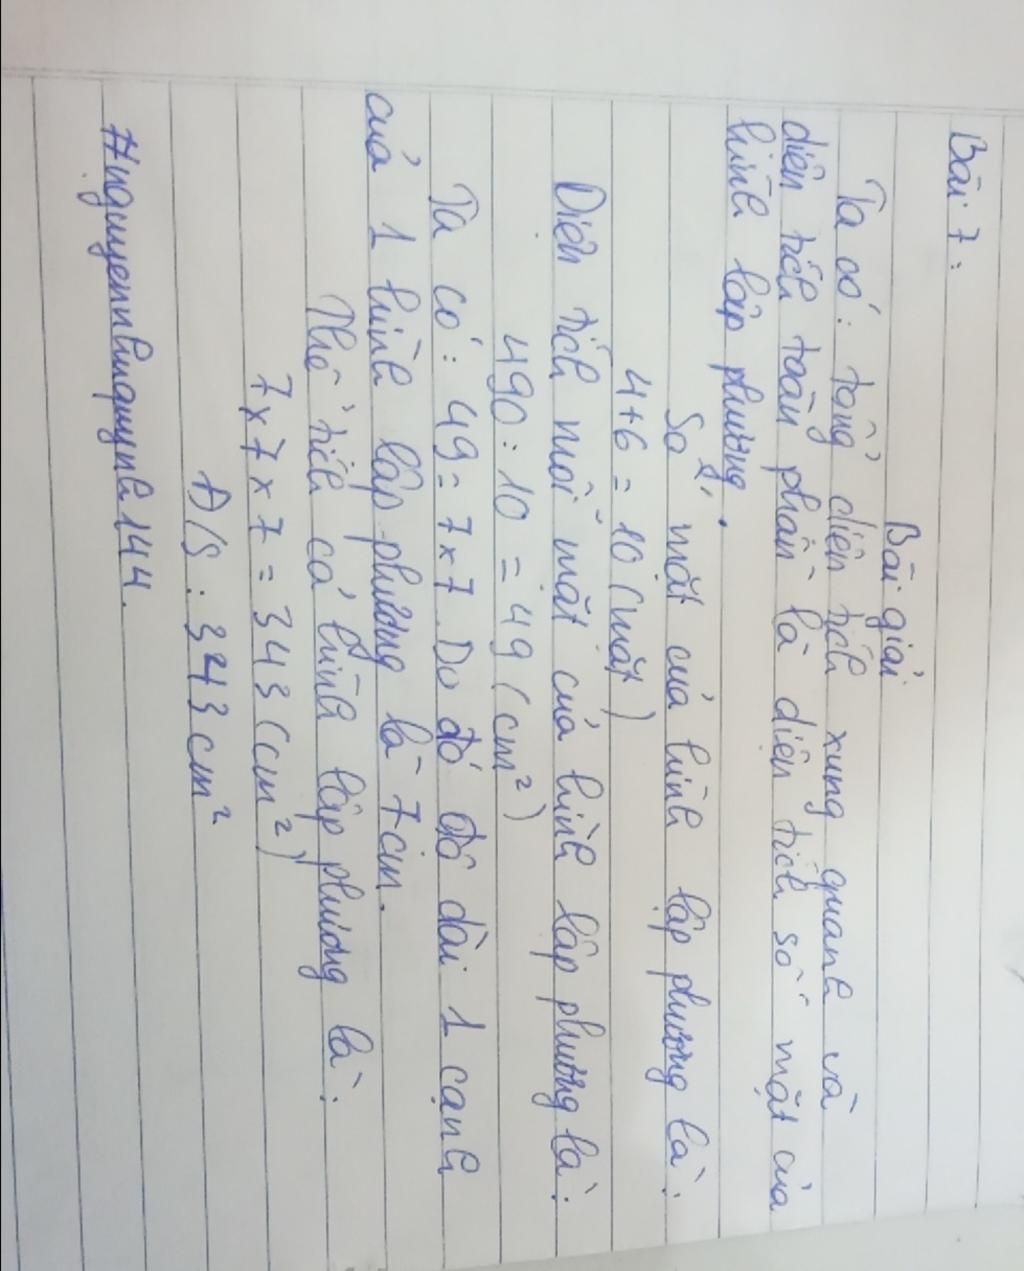 Bài 7:
Bài giải
Ta có: tổng diện tích xung quanh và
diện tích toàn phần là diện tích số mặt của
hình lập phương.
Số mặt của hình lập phương là:
4+6 = 10 (mặt)
Diện tích mỗi mặt của hình lập phương là:
490 : 10 = 49 (cm²)
Ta có: 49 = 7 x 7. Do đó độ dài 1 cạnh
của 1 hình lập phương là 7cm.
Thể tích cả hình lập phương là:
7 x 7 x 7 = 343 (cm²)
Đ/S: 343 cm²
#nguyenthuquynh144.